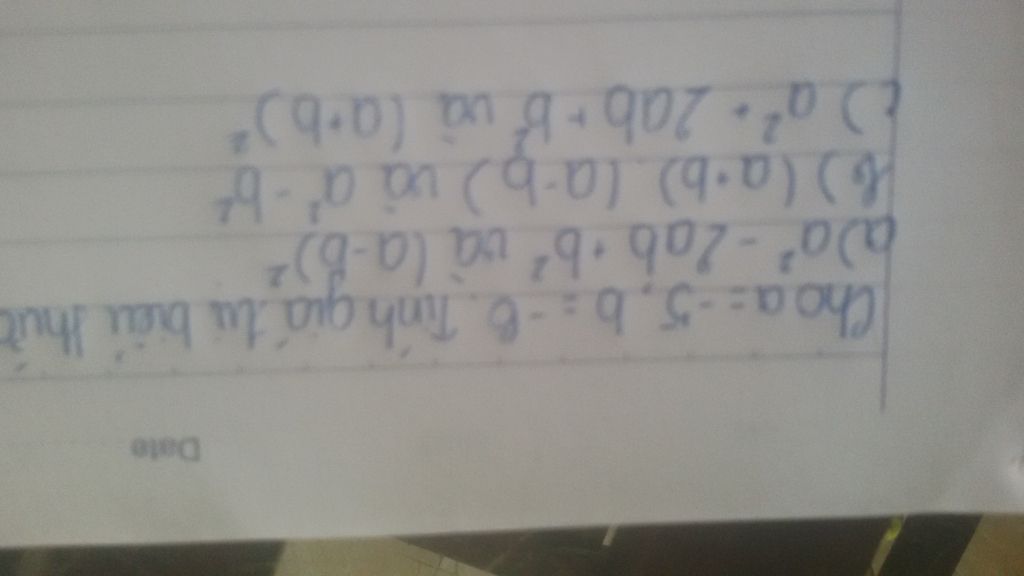 Date
Cho a = -5, b = -6. Tính giá trị biểu thức
a) a² - 2ab + b² và (a-b)²
b) (a+b).(a-b) và a² - b²
c) a² + 2ab + b² và (a+b)²